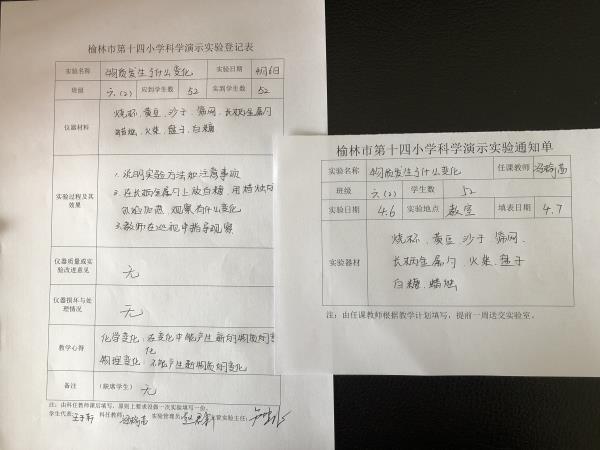 榆林市第十四小学科学演示实验登记表
实验名称 物质发生了什么变化 实验日期 4月6日
班级 六(2) 应到学生数 52 实到学生数 52
仪器材料 烧杯、黄豆、沙子、筛网、长柄金属勺
蜡烛、火柴、盘子、白糖
实验过程及其效果
1.说明实验方法和注意事项
2.在长柄金属勺上放白糖,用蜡烛
加热 观察有什么变化
3.教师在巡视中指导观察
仪器质量或实验改进意见 无
仪器损坏与处理情况 无
教学心得 化学变化:在变化中能产生新的物质的变化
物理变化:不能产生新物质的变化
备注 (缺席学生) 无
注:由科任教师课后填写,原则上要求没做一次实验填写一份。
学生代表: 科任教师: 实验管理员: 主管实验主任:
榆林市第十四小学科学演示实验通知单
实验名称 物质发生了什么变化 任课教师
班级 六(2) 学生数 52
实验日期 4.6 实验地点 教室 填表日期 4.7
实验器材 烧杯、黄豆、沙子、筛网、
长柄金属勺、火柴、盘子
白糖、蜡烛
注:由任课教师根据教学计划填写,提前一周送交实验室。